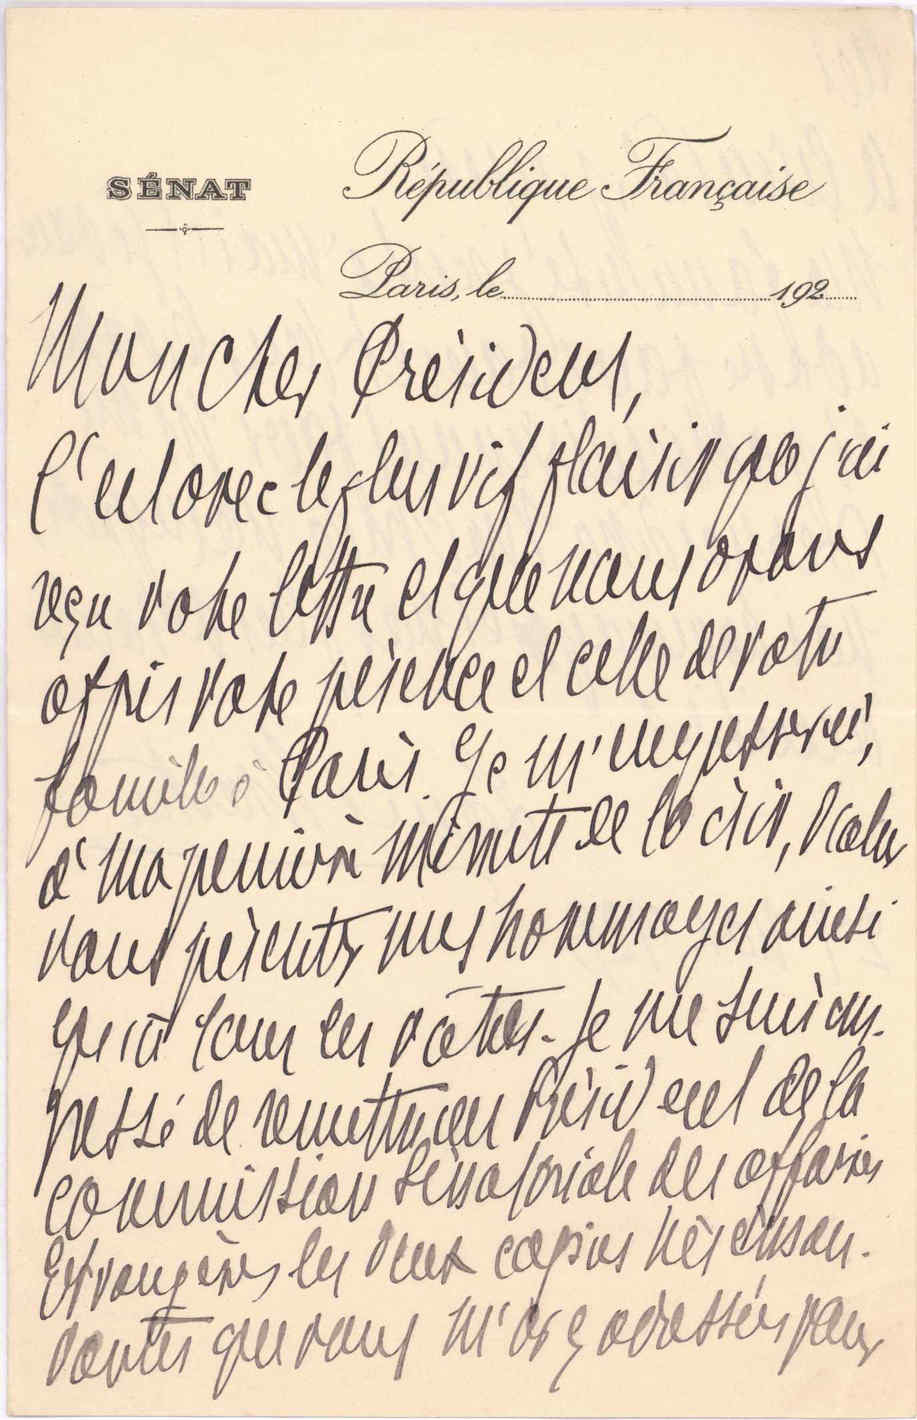 SÉNAT
République Française
Paris, le 192
Mon cher Président,
C'est avec le plus vif plaisir que j'ai
reçu votre lettre et que nous avons
appris votre présence et celle de votre
famille à Paris. Je m'empresserai,
à ma première minute de loisir, d'aller
vous présenter mes hommages ainsi
qu'à tous les vôtres. Je me suis em-
pressé de remettre au Président de la
commission sénatoriale des affaires
Etrangères les deux copies très
que vous m'avez adressées pour